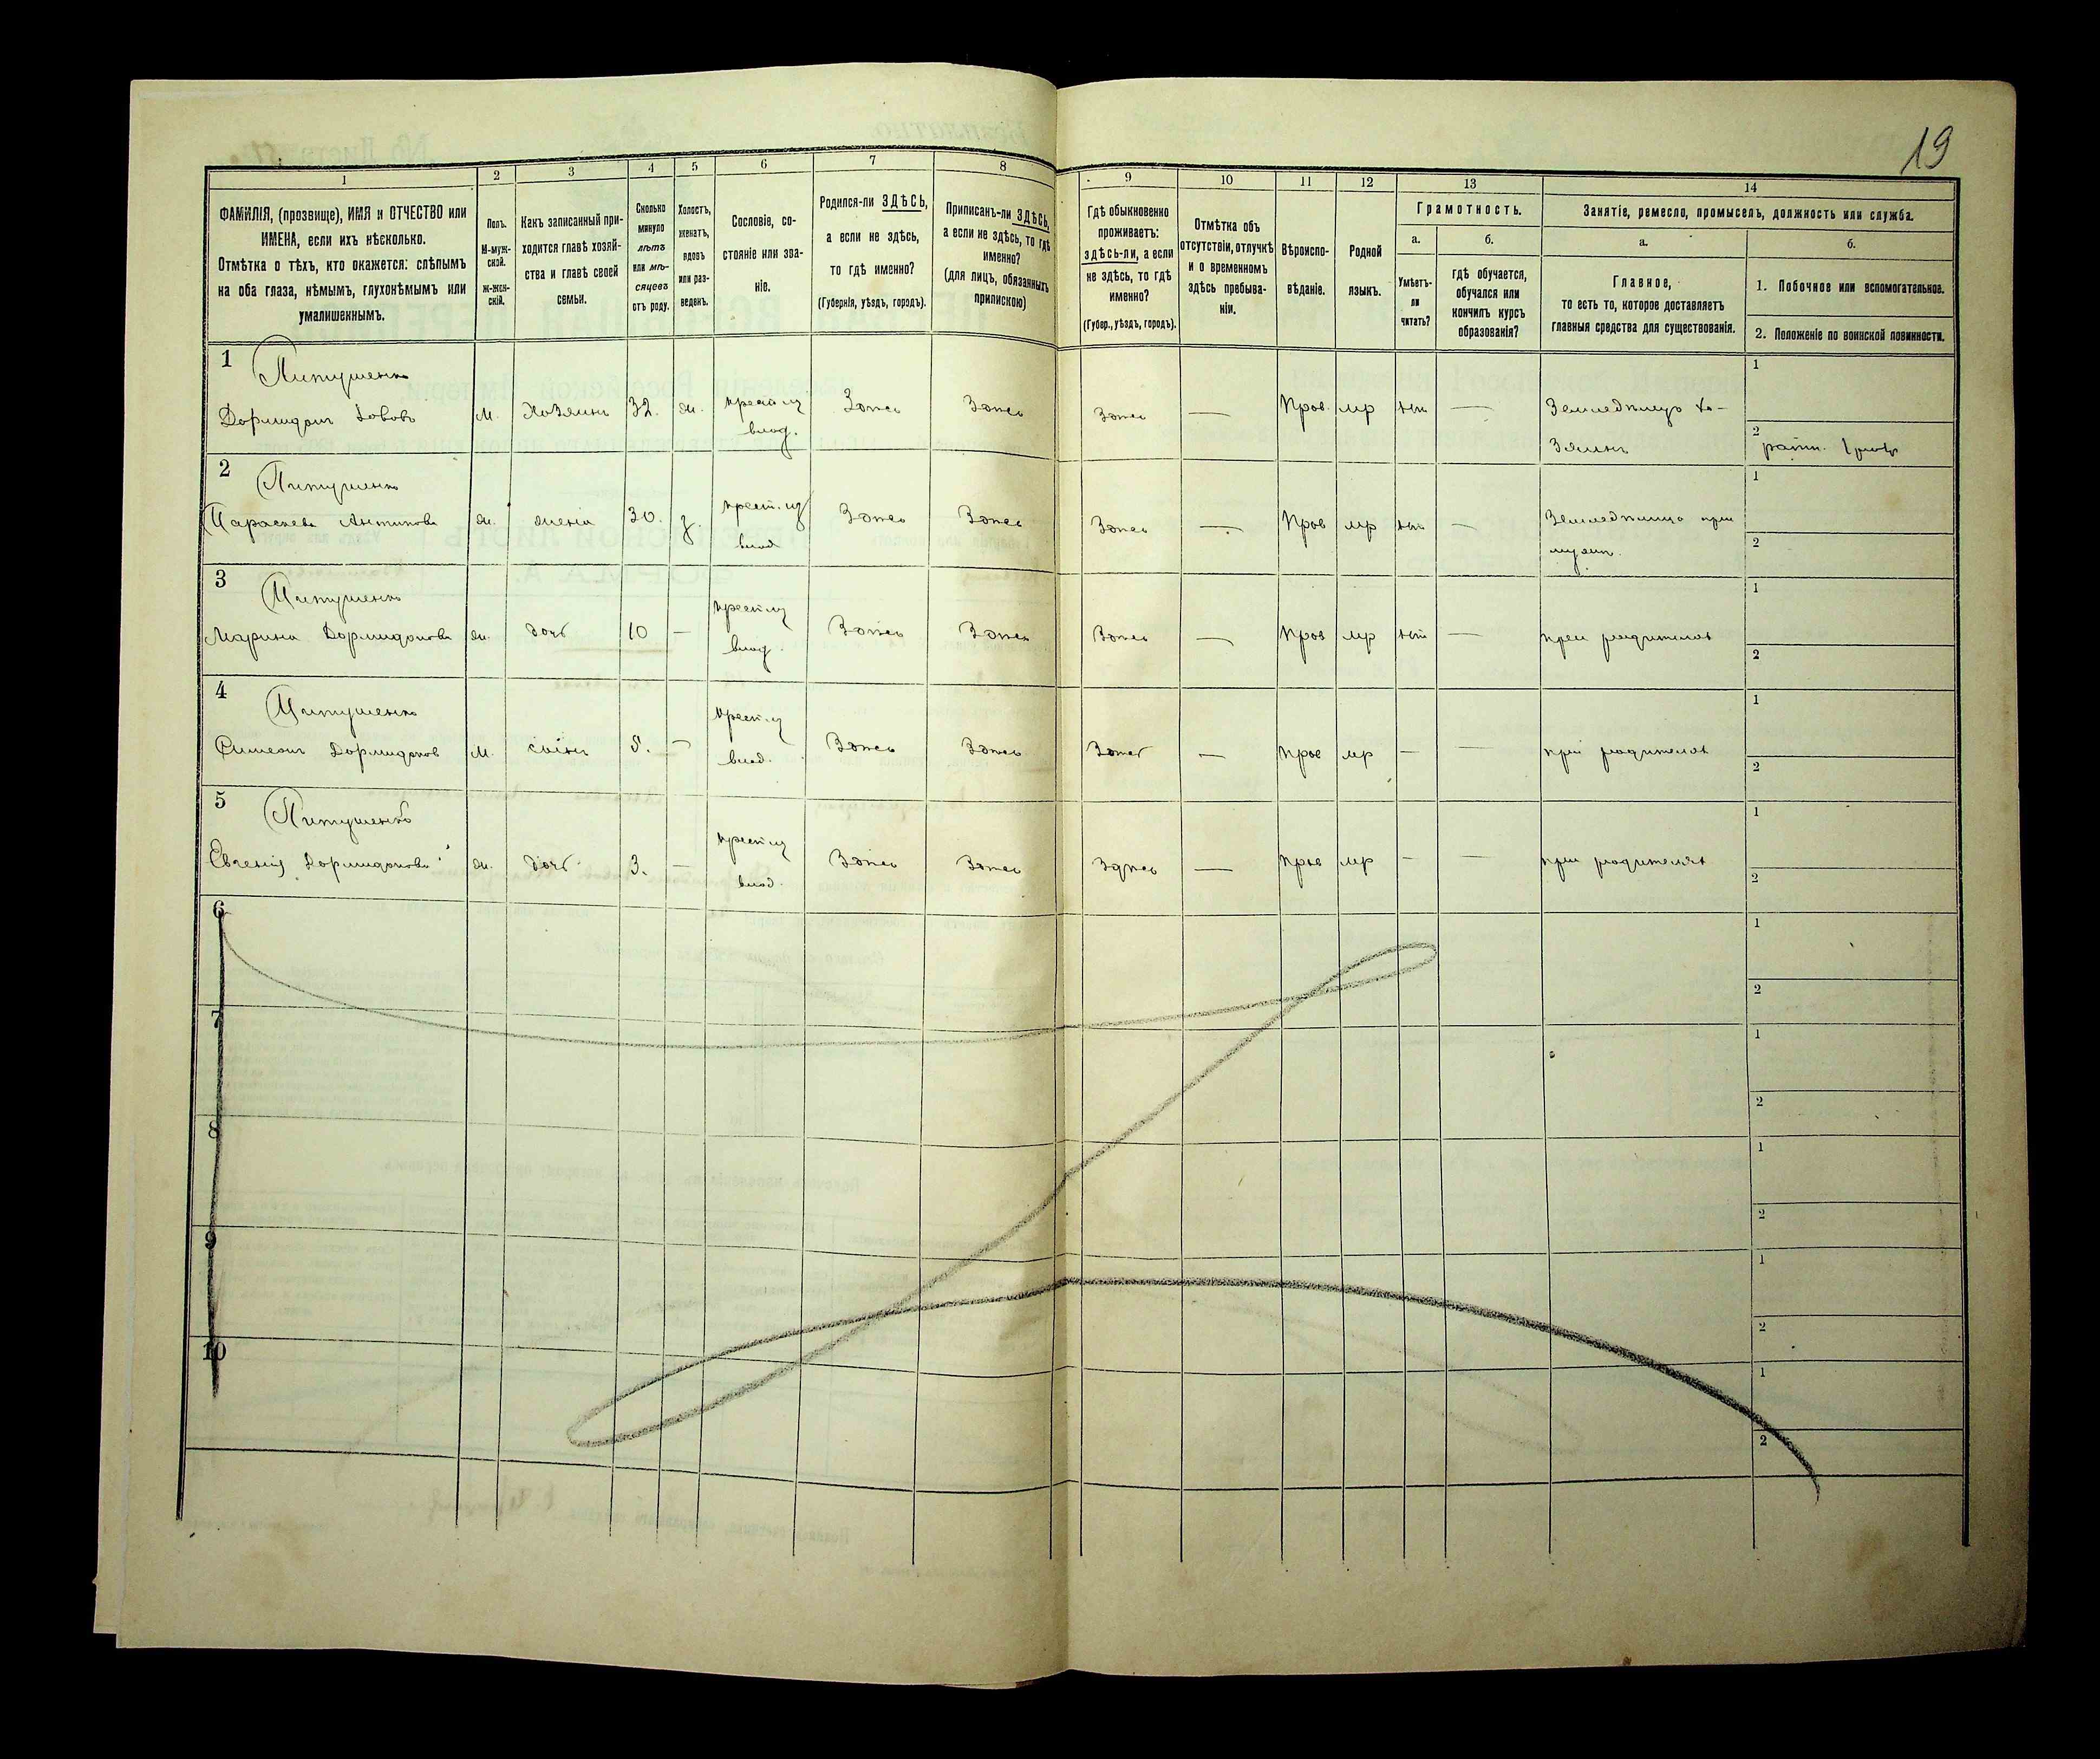 19
1 2 3 4 5 6 7 8 9 10 11 12 13 14
ФАМИЛІЯ, (прозвище), ИМЯ и ОТЧЕСТВО или
ИМЕНА, если ихъ нѣсколько.
Отмѣтка о тѣхъ, кто окажется: слѣпымъ
на оба глаза, нѣмымъ, глухонѣмымъ или
умалишеннымъ.
Полъ.
М-муж-
ской.
Ж-жен-
скій.
Какъ записанный при-
ходится главѣ хозяй-
ства и главѣ своей
семьи.
Сколько
минуло
лѣтъ
или мѣ-
сяцевъ
отъ роду.
Холостъ,
женатъ,
вдовъ
или раз-
веденъ.
Сословіе, со-
стояніе или зва-
ніе.
Родился-ли ЗДѢСЬ,
а если не здѣсь,
то гдѣ именно?
(Губернія, уѣздъ, городъ).
Приписанъ-ли ЗДѢСЬ,
а если не здѣсь, то гдѣ
именно?
(для лицъ, обязанныхъ
припискою)
Гдѣ обыкновенно
проживаетъ:
здѣсь-ли, а если
не здѣсь, то гдѣ
именно?
(Губер., уѣздъ, городъ).
Отмѣтка объ
отсутствіи, отлучкѣ
и о временномъ
здѣсь пребыва-
ніи.
Вѣроиспо-
вѣданіе.
Родной
языкъ.
Грамотность.
а.
Умѣетъ-
ли
читать?
б.
гдѣ обучается,
обучался или
кончилъ курсъ
образованія?
Занятіе, ремесло, промыселъ, должность или служба.
а.
Главное,
то есть то, которое доставляетъ
главныя средства для существованія.
б.
1. Побочное или вспомогательное.
2. Положеніе по воинской повинности.
1
Дормидонт М. Хозяинъ 32. ж. крест. из
влад.
Здѣсь Здѣсь Здѣсь — Прав. мр нѣт — Земледѣлецъ хо-
зяинъ
1
2
2
Параскева Антипова ж. жена 30. з. крест. из
влад
Здѣсь Здѣсь Здѣсь — Прав мр нѣт — Земледѣлица при
мужѣ.
1
2
3
Марина Дормидонова ж. дочь 10 — крест из
влад.
Здѣсь Здѣсь Здѣсь — Прав мр нѣт — при родителях
1
2
4
Симеон Дормидонов М. сынъ 5. — крест. из
влад.
Здѣсь Здѣсь Здѣсь — Прав мр — — при родителях
1
2
5
Евгенія Дормидонова ж. дочь 3. — крест из
влад.
Здѣсь Здѣсь Здѣсь — Прав мр — — при родителях
1
2
6
1
2
7
1
2
8
1
2
9
1
2
10
1
2